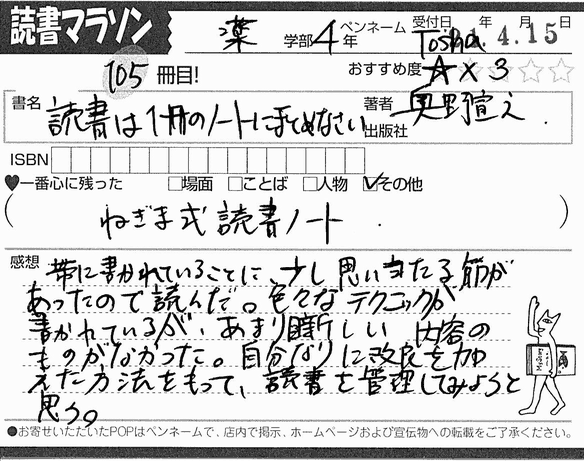 読書マラソン
薬 学部 4 年 ペンネーム Tosha. 受付日 年 月 日 4.15
105 冊目! おすすめ度 ☆×3 ☆☆
書名 読書は1冊のノートにまとめなさい 著者 奥野宣之
出版社
ISBN
♥一番心に残った □場面 □ことば □人物 ☑その他
( ねぎま式読書ノート )
感想 帯に書かれていることに、少し思い当たる節が
あったので読んだ。色々なテクニックが
書かれているが、あまり目新しい内容の
ものがなかった。自分なりに改良を加
えた方法をもって、読書を管理してみようと
思う。
●お寄せいただいたPOPはペンネームで、店内で掲示、ホームページおよび宣伝物への転載をご了承ください。